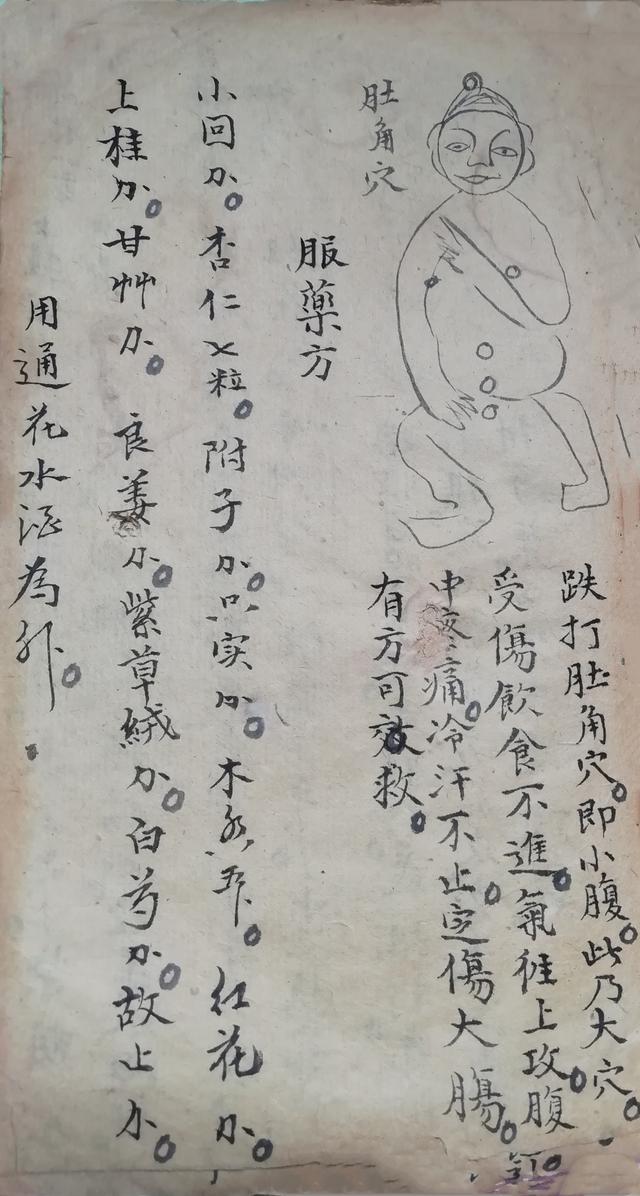 肚角穴
跌打肚角穴。即小腹。此乃大穴。
受傷飲食不進。氣往上攻。腹
中疼痛。冷汗不止。定傷大腸。
有方可效救。
服藥方
小回。杏仁〤粒。附子。只实。木香五。红花。
上桂。甘艸。良姜。紫草絨。白芍。故止。
用通花水酒為引。